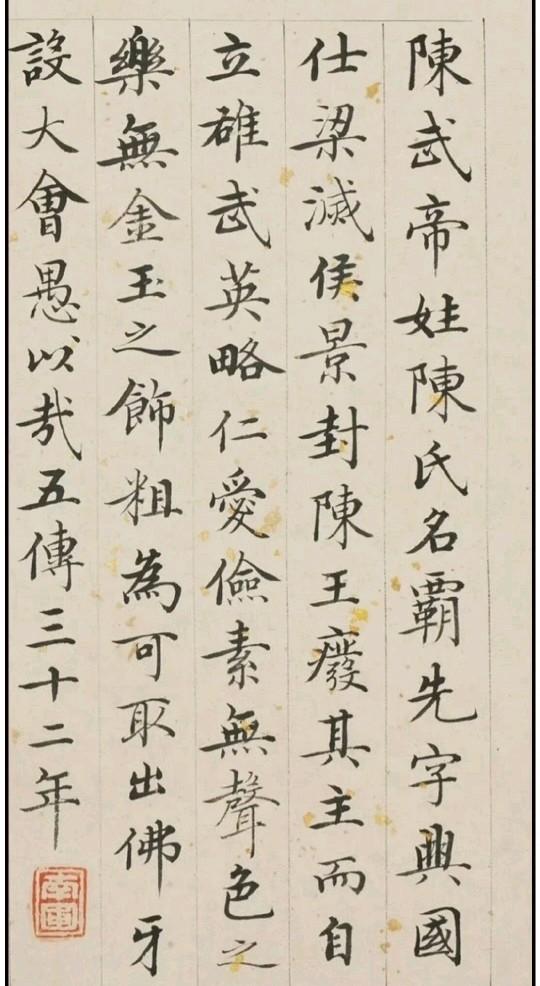 陳武帝姓陳氏名霸先字興國
仕梁滅侯景封陳王廢其主而自
立雄武英略仁愛儉素無聲色之
樂無金玉之飾粗為可取出佛牙
設大會愚以哉五傳三十二年